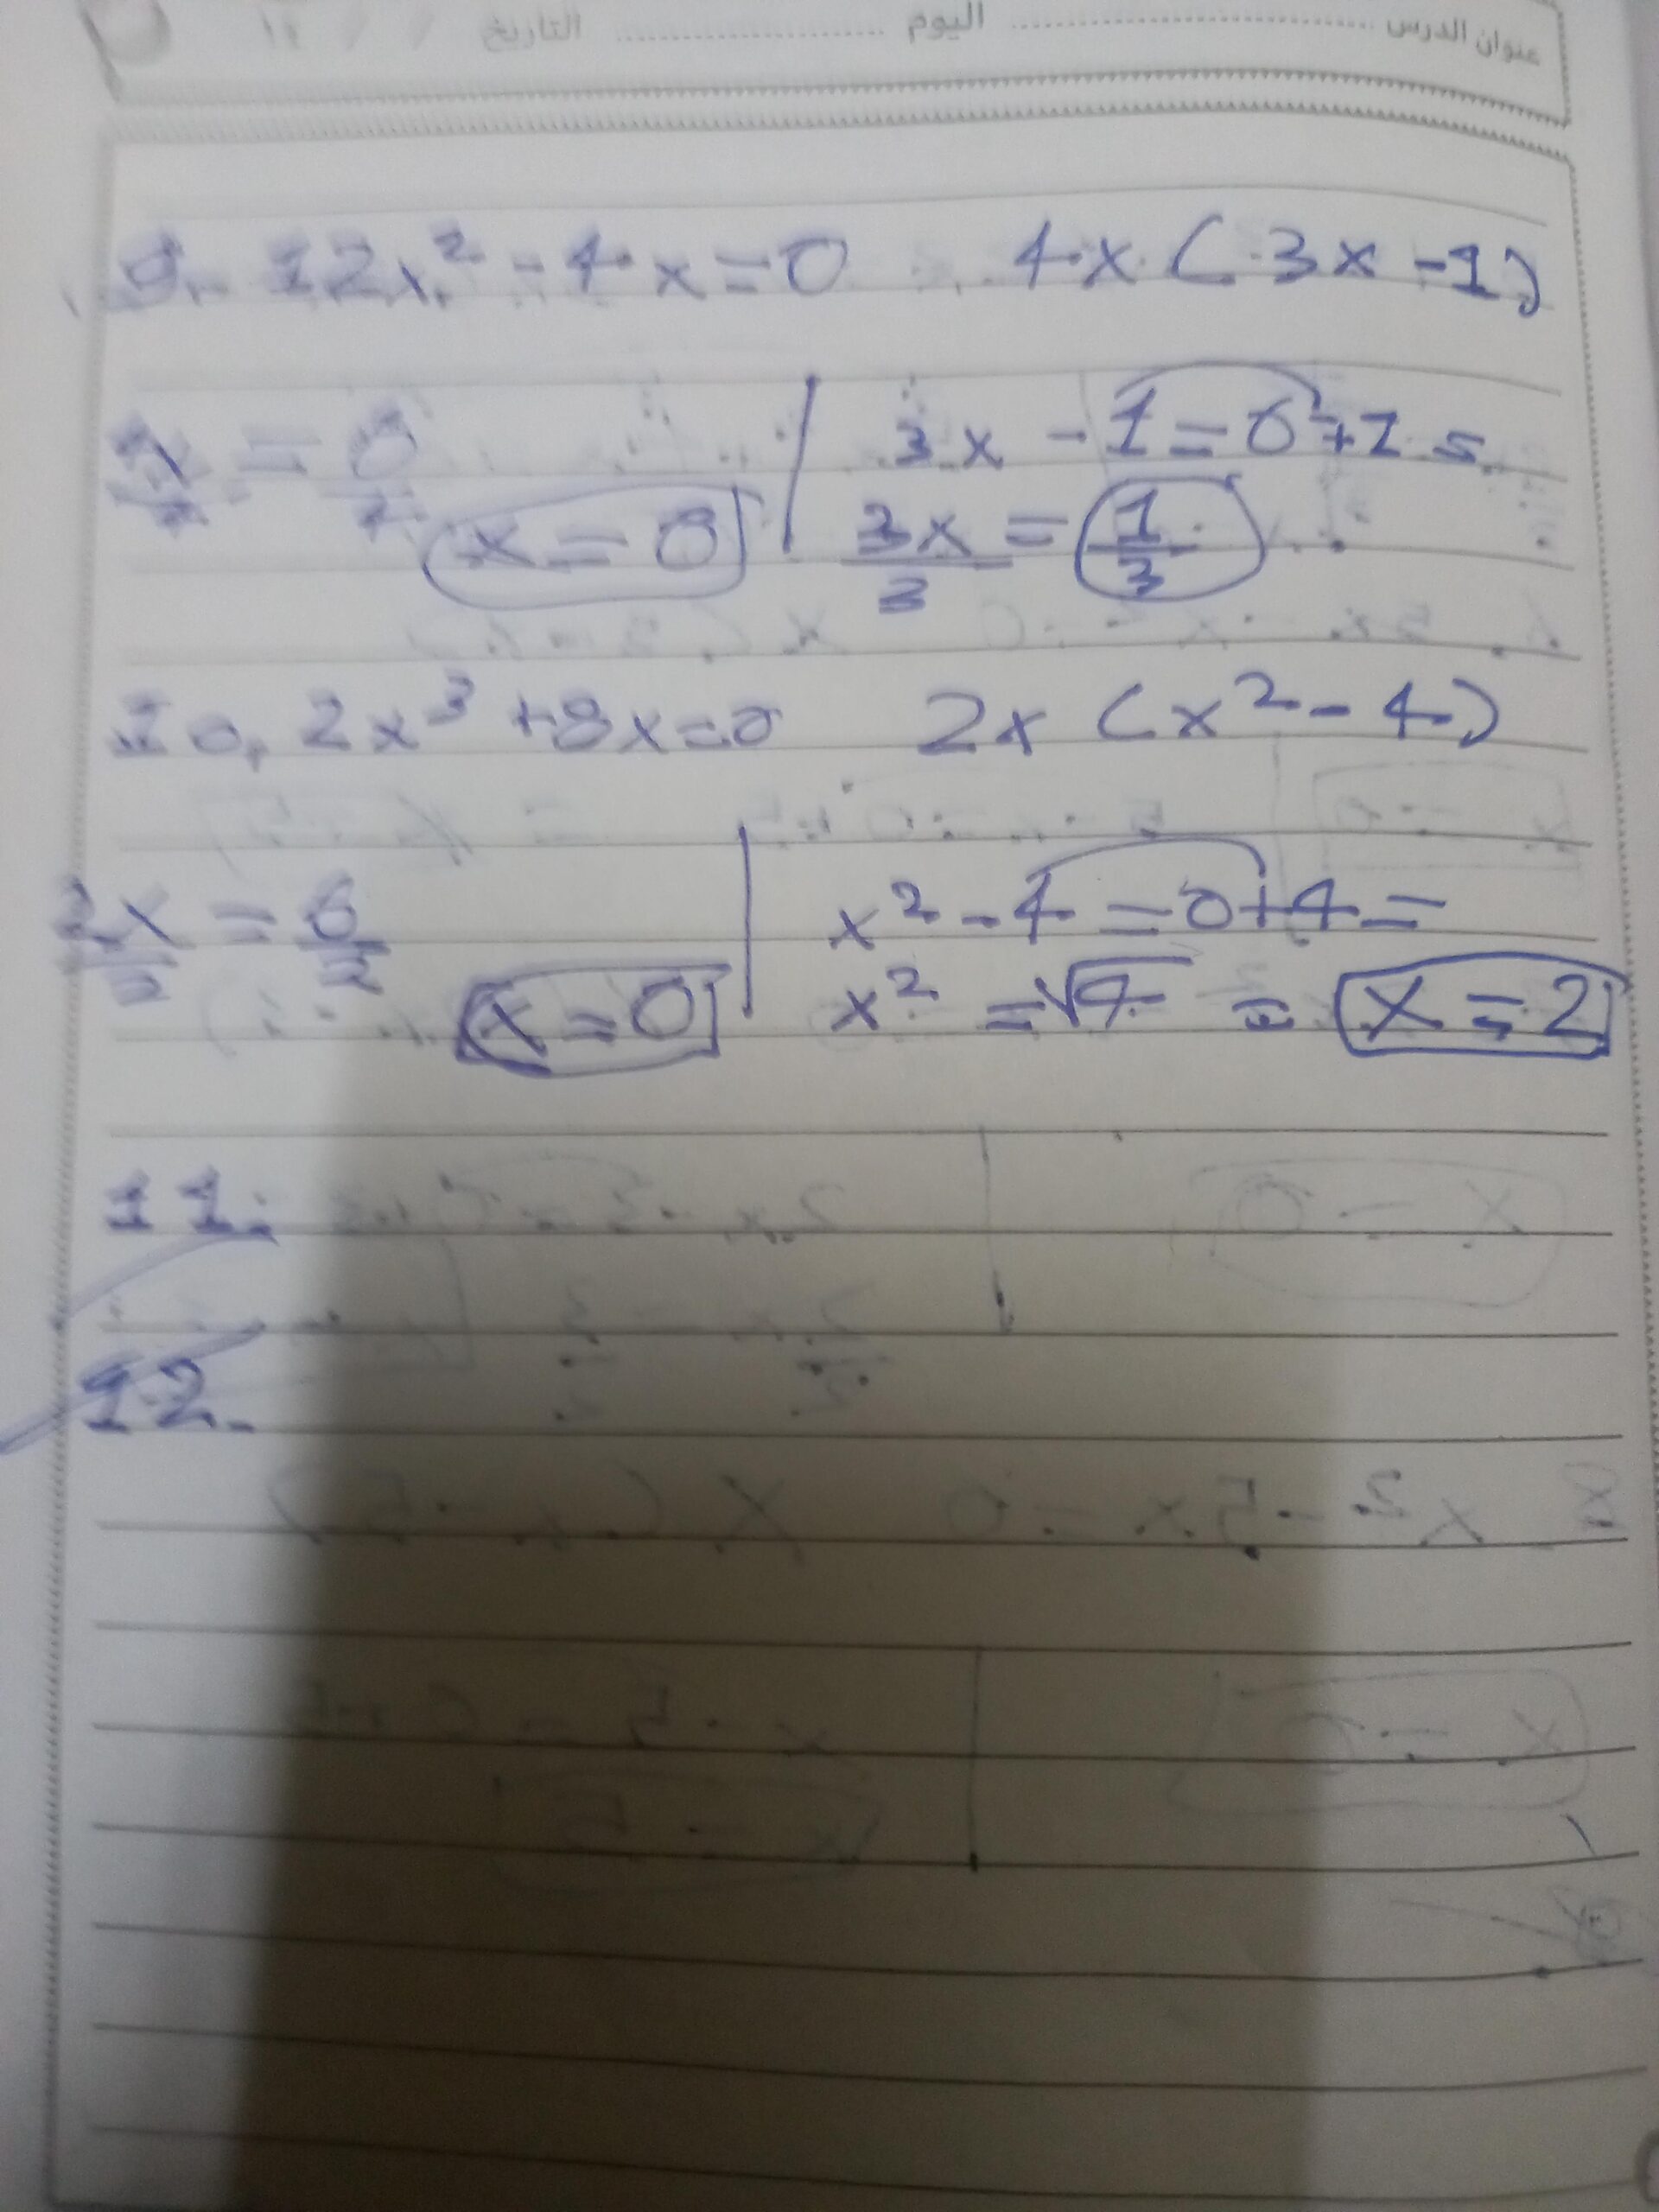 عنوان الدرس ........ اليوم ........ التاريخ / /
9. 12x² - 4x = 0 4x (3x - 1)
x = 0 | 3x - 1 = 0 + 1 =
x = 0 | 3x/3 = 1/3
10. 2x³ + 8x = 0 2x (x² - 4)
2x/2 = 0/2 | x² - 4 = 0 + 4 =
x = 0 | x² = √4 = x = 2
11.
12.